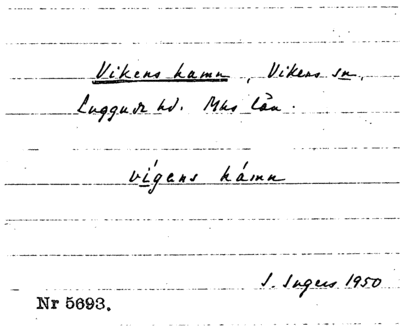 Vikens hamn, Vikens sn,
Luggude hd. Mhs län.
vígens hámn
I. Ingers 1950
Nr 5693.